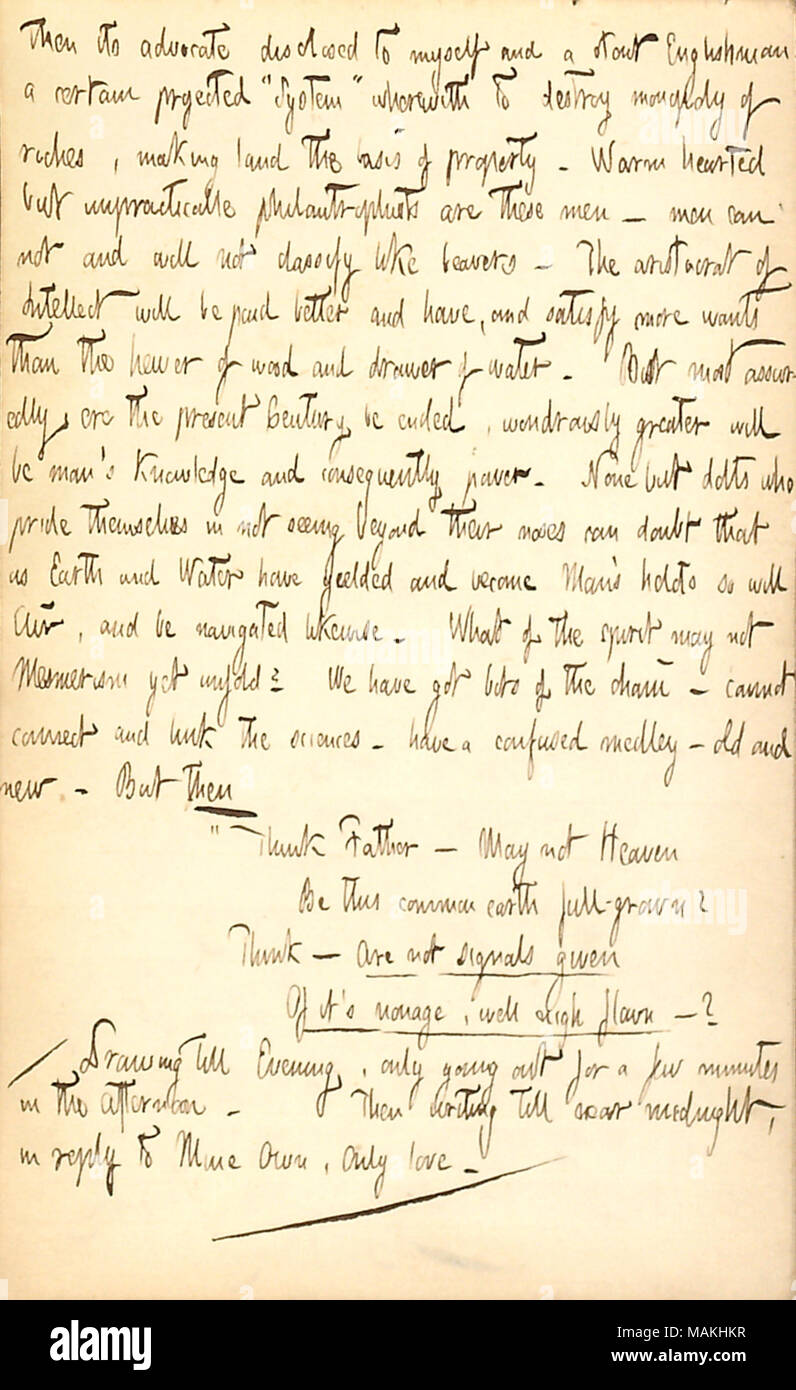 then its advocate disclosed to myself and a stout Englishman
a certain projected "System" wherewith to destroy monopoly of
riches, making land the basis of property. Warm hearted
but unpracticable philanthrophists are these men — men can
not and will not classify like beavers — The aristocrat of
Intellect will be paid better and have, and satisfy more wants
than the hewer of wood and drawer of water. But most assur-
edly, ere the present Century be ended, wondrously greater will
be man's Knowledge and consequently power. None but dolts who
pride themselves in not seeing beyond their noses can doubt that
as Earth and Water have yeelded and become Man's holds so will
Air, and be navigated likewise. What of the spirit may not
Mesmerism yet unfold? We have got bits of the chain — cannot
connect and link the sciences — have a confused medley — old and
new. — But then
"Think Father — May not Heaven
Be this common earth full-grown?
Think — are not signals given
Of it's nonage, well nigh flown —?
/ Drawing till Evening, only going out for a few minutes
in the afternoon. Then writing till near midnight,
in reply to Mine Own, Only love.
alamy
a
Image ID: MAKHKR
www.alamy.com